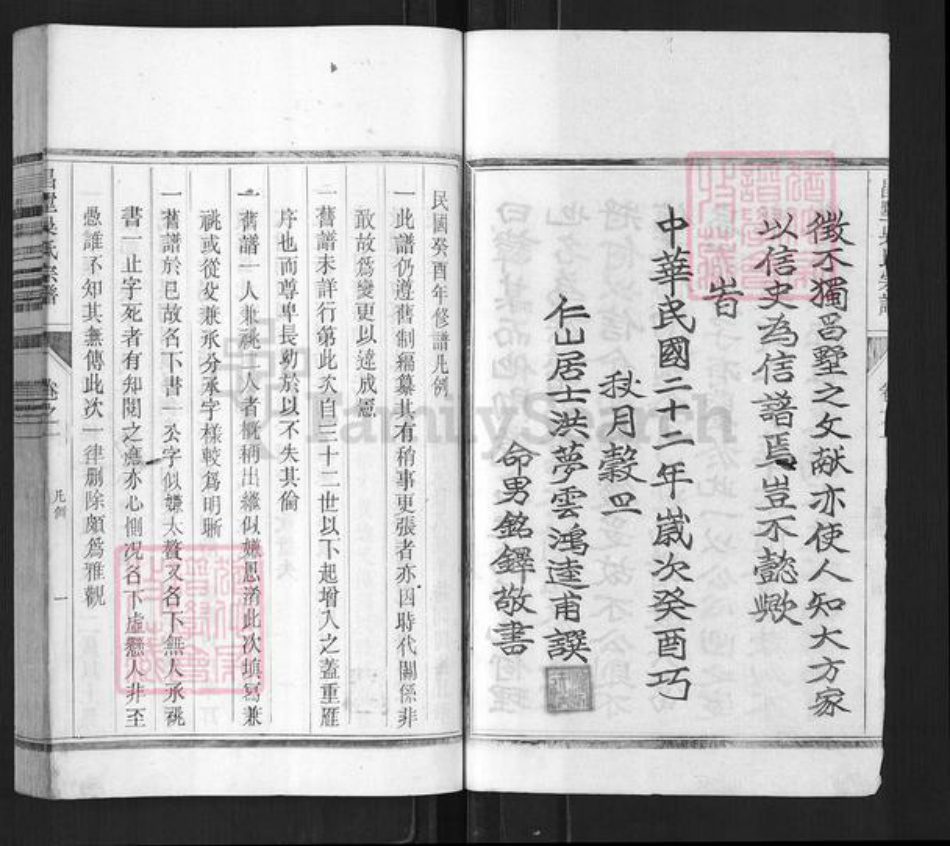 徵不獨昌墅之文献亦使人知大方家
以信史為信譜焉豈不懿歟
旹
中華民國二十二年嵗次癸酉巧
秋月穀旦
仁山居士洪夢雲鴻逵甫譔
命男銘鐸敬書
民國癸酉年修譜凡例
一此譜仍遵舊制編纂其有稍事更張者亦因時代關係非
敢故爲變更以違成憲
一舊譜未詳行第此次自三十二世以下起增入之蓋重雁
序也而尊卑長幼於以不失其倫
一舊譜一人兼祧二人者概稱出繼似嫌思淆此次塡寫兼
祧或從父兼承分承字樣較爲明晰
一舊譜於已故名下書一公字似嫌大贅又名下無人承祧
書一止字死者有知閱之應亦心惻况名下虛懸人非至
愚誰不知其無傳此次一律删除頗爲雅觀
昌墅吳氏宗譜
卷之一
凡例
一
FamilySearch